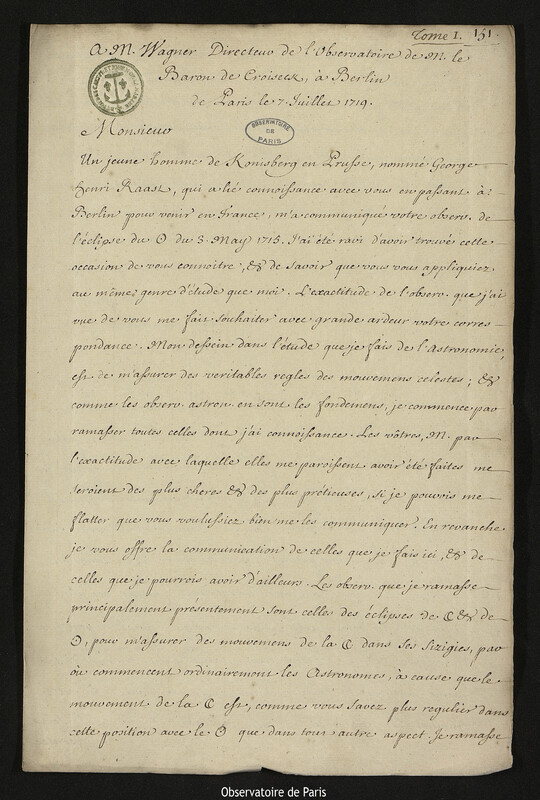 Tome I. 151.
A M. Wagner Directeur de l'Observatoire de M. le
Baron de Croiseck, à Berlin
de Paris le 7. Juillet 1719.
OBSERVATOIRE
DE
PARIS
Monsieur
Un jeune homme de Konisberg en Prusse, nommé George
henri Raast, qui a lié connoissance avec vous en passant à
Berlin pour venir en France, m'a communiqué votre observ. de
l'éclipse du ☉ du 3. May 1715. J'ai été ravi d'avoir trouvé cette
occasion de vous connoitre, & de savoir que vous vous appliquiez
au même genre d'étude que moi. L'exactitude de l'observ. que j'ai
vue de vous me fait souhaiter avec grande ardeur votre corres-
pondance. Mon dessein dans l'étude que je fais de l'Astronomie,
est de m'assurer des veritables regles des mouvemens celestes; &
comme les observ. astron. en sont les fondemens, je commence par
ramasser toutes celles dont j'ai connoissance. Les vôtres, M. par
l'exactitude avec laquelle elles me paroissent avoir été faites me
seroient des plus cheres & des plus prétieuses, si je pouvois me
flatter que vous voulussiez bien me les communiquer. En revanche
je vous offre la communication de celles que je fais ici, & de
celles que je pourrois avoir d'ailleurs. Les observ. que je ramasse
principalement présentement sont celles des éclipses de ☾ & de
☉, pour m'assurer des mouvemens de la ☾ dans ses sizigies, par
où commencent ordinairemont les Astronomes, à cause que le
mouvement de la ☾ est, comme vous savez plus regulier dans
cette position avec le ☉ que dans tout autre aspect. Je ramasse
Observatoire de Paris